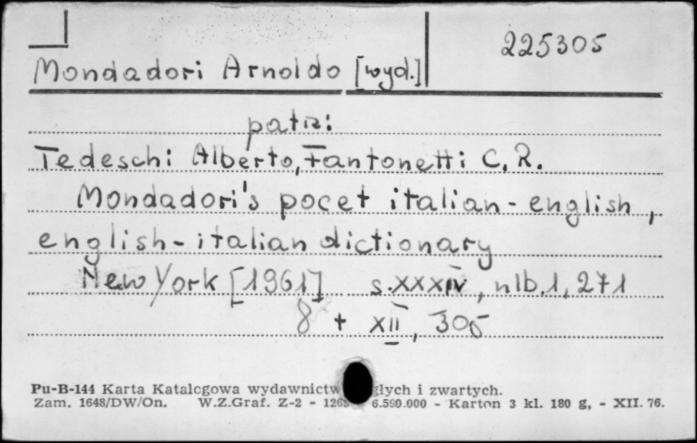 225305
Mondadori Arnoldo [wyd.]
patrz:
Tedeschi Alberto, Fantonetti C.R.
Mondadori's pocet italian-english,
english-italian dictionary
New York [1961] s.XXXIV, nlb.1, 271
8 + XII, 305
Pu-B-144 Karta Katalogowa wydawnictw głych i zwartych.
Zam. 1648/DW/On. W.Z.Graf. Z-2 - 6.590.000 - Karton 3 kl. 180 g, - XII. 76.